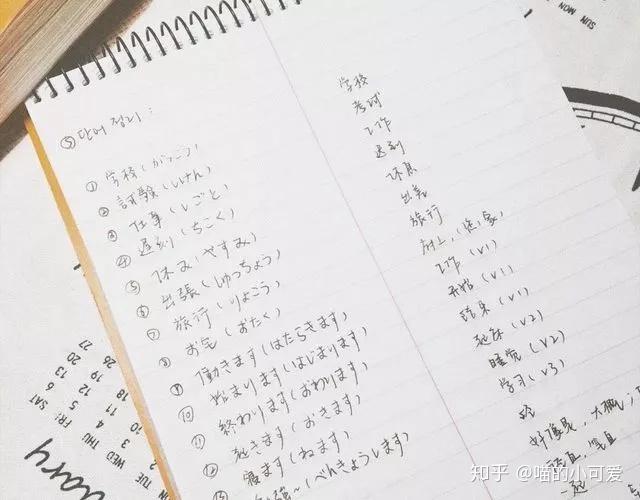 ⑤ 단어 정리 :
① 学校 (がっこう) 学校
② 試験 (しけん) 考试
③ 仕事 (しごと) 工作
④ 遅刻 (ちこく) 迟到
⑤ 休み (やすみ) 休息
⑥ 出張 (しゅっちょう) 出差
⑦ 旅行 (りょこう) 旅行
⑧ お宅 (おたく) 府上,
⑨ 働きます (はたらきます) 工作 (V1)
⑩ 始まります (はじまります) 开始 (V1)
⑪ 終わります (おわります) 结束 (V1)
⑫ 起きます (おきます) 起床 (V2)
寝ます (ねます) 睡觉 (V2)
(べんきょうします) 学习 (V3)
SUN
MON
SAT 6 13 20 27
FRI 5 12 19
THU 4 11 18
WED
TUE
MON
uary
知乎 @喵的小可爱